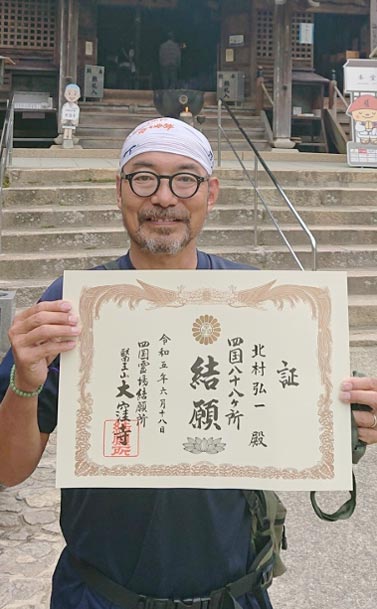 証
北村弘一 殿
四国八十八ヶ所
結願
令和五年六月十八日
四国霊場結願所
醫王山 大窪寺